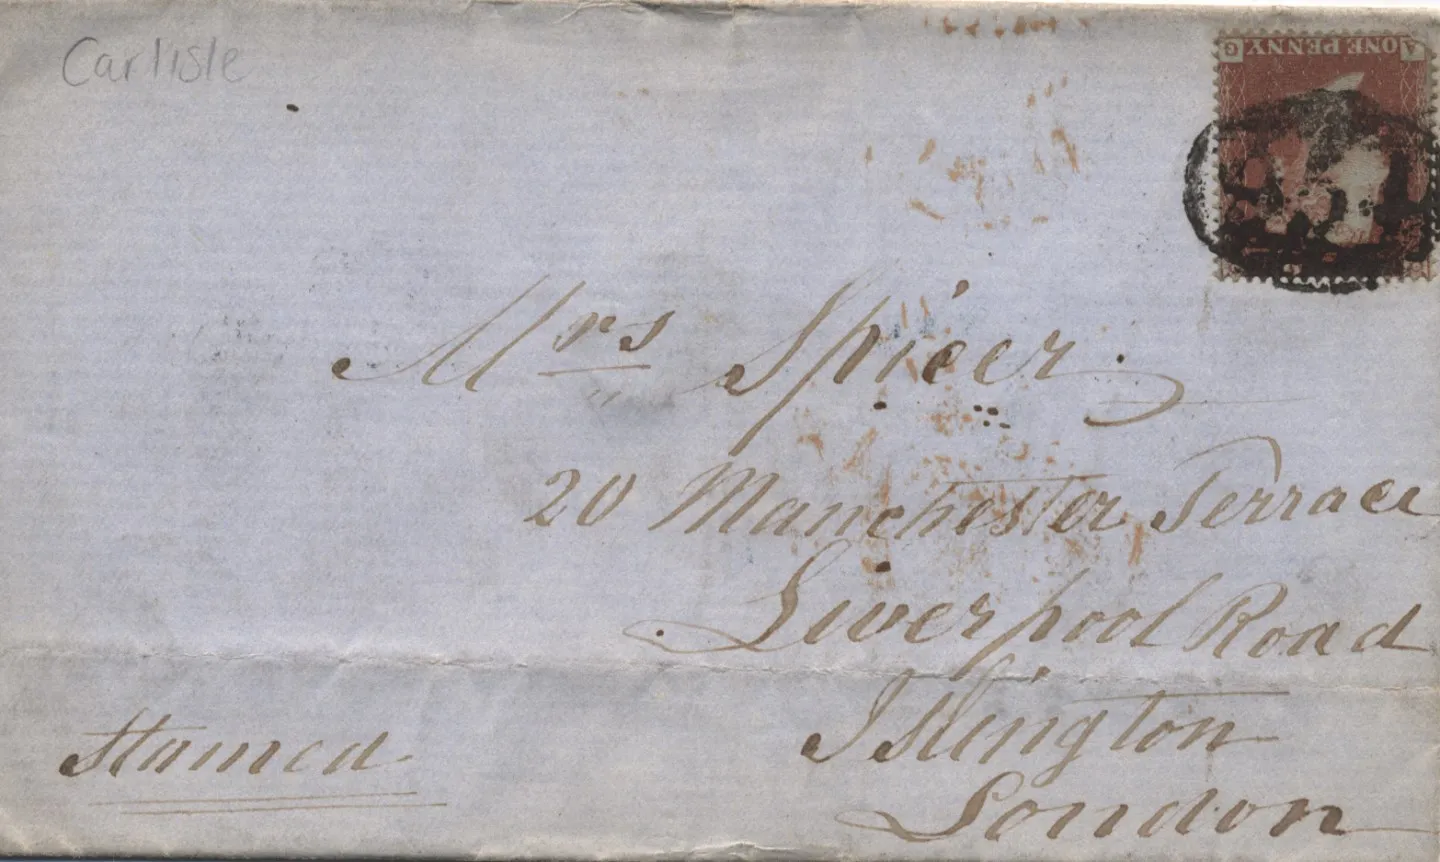 Carlisle
ONE PENNY
Mrs Spicer
20 Manchester Terrace
Liverpool Road
Islington
London
Stamed